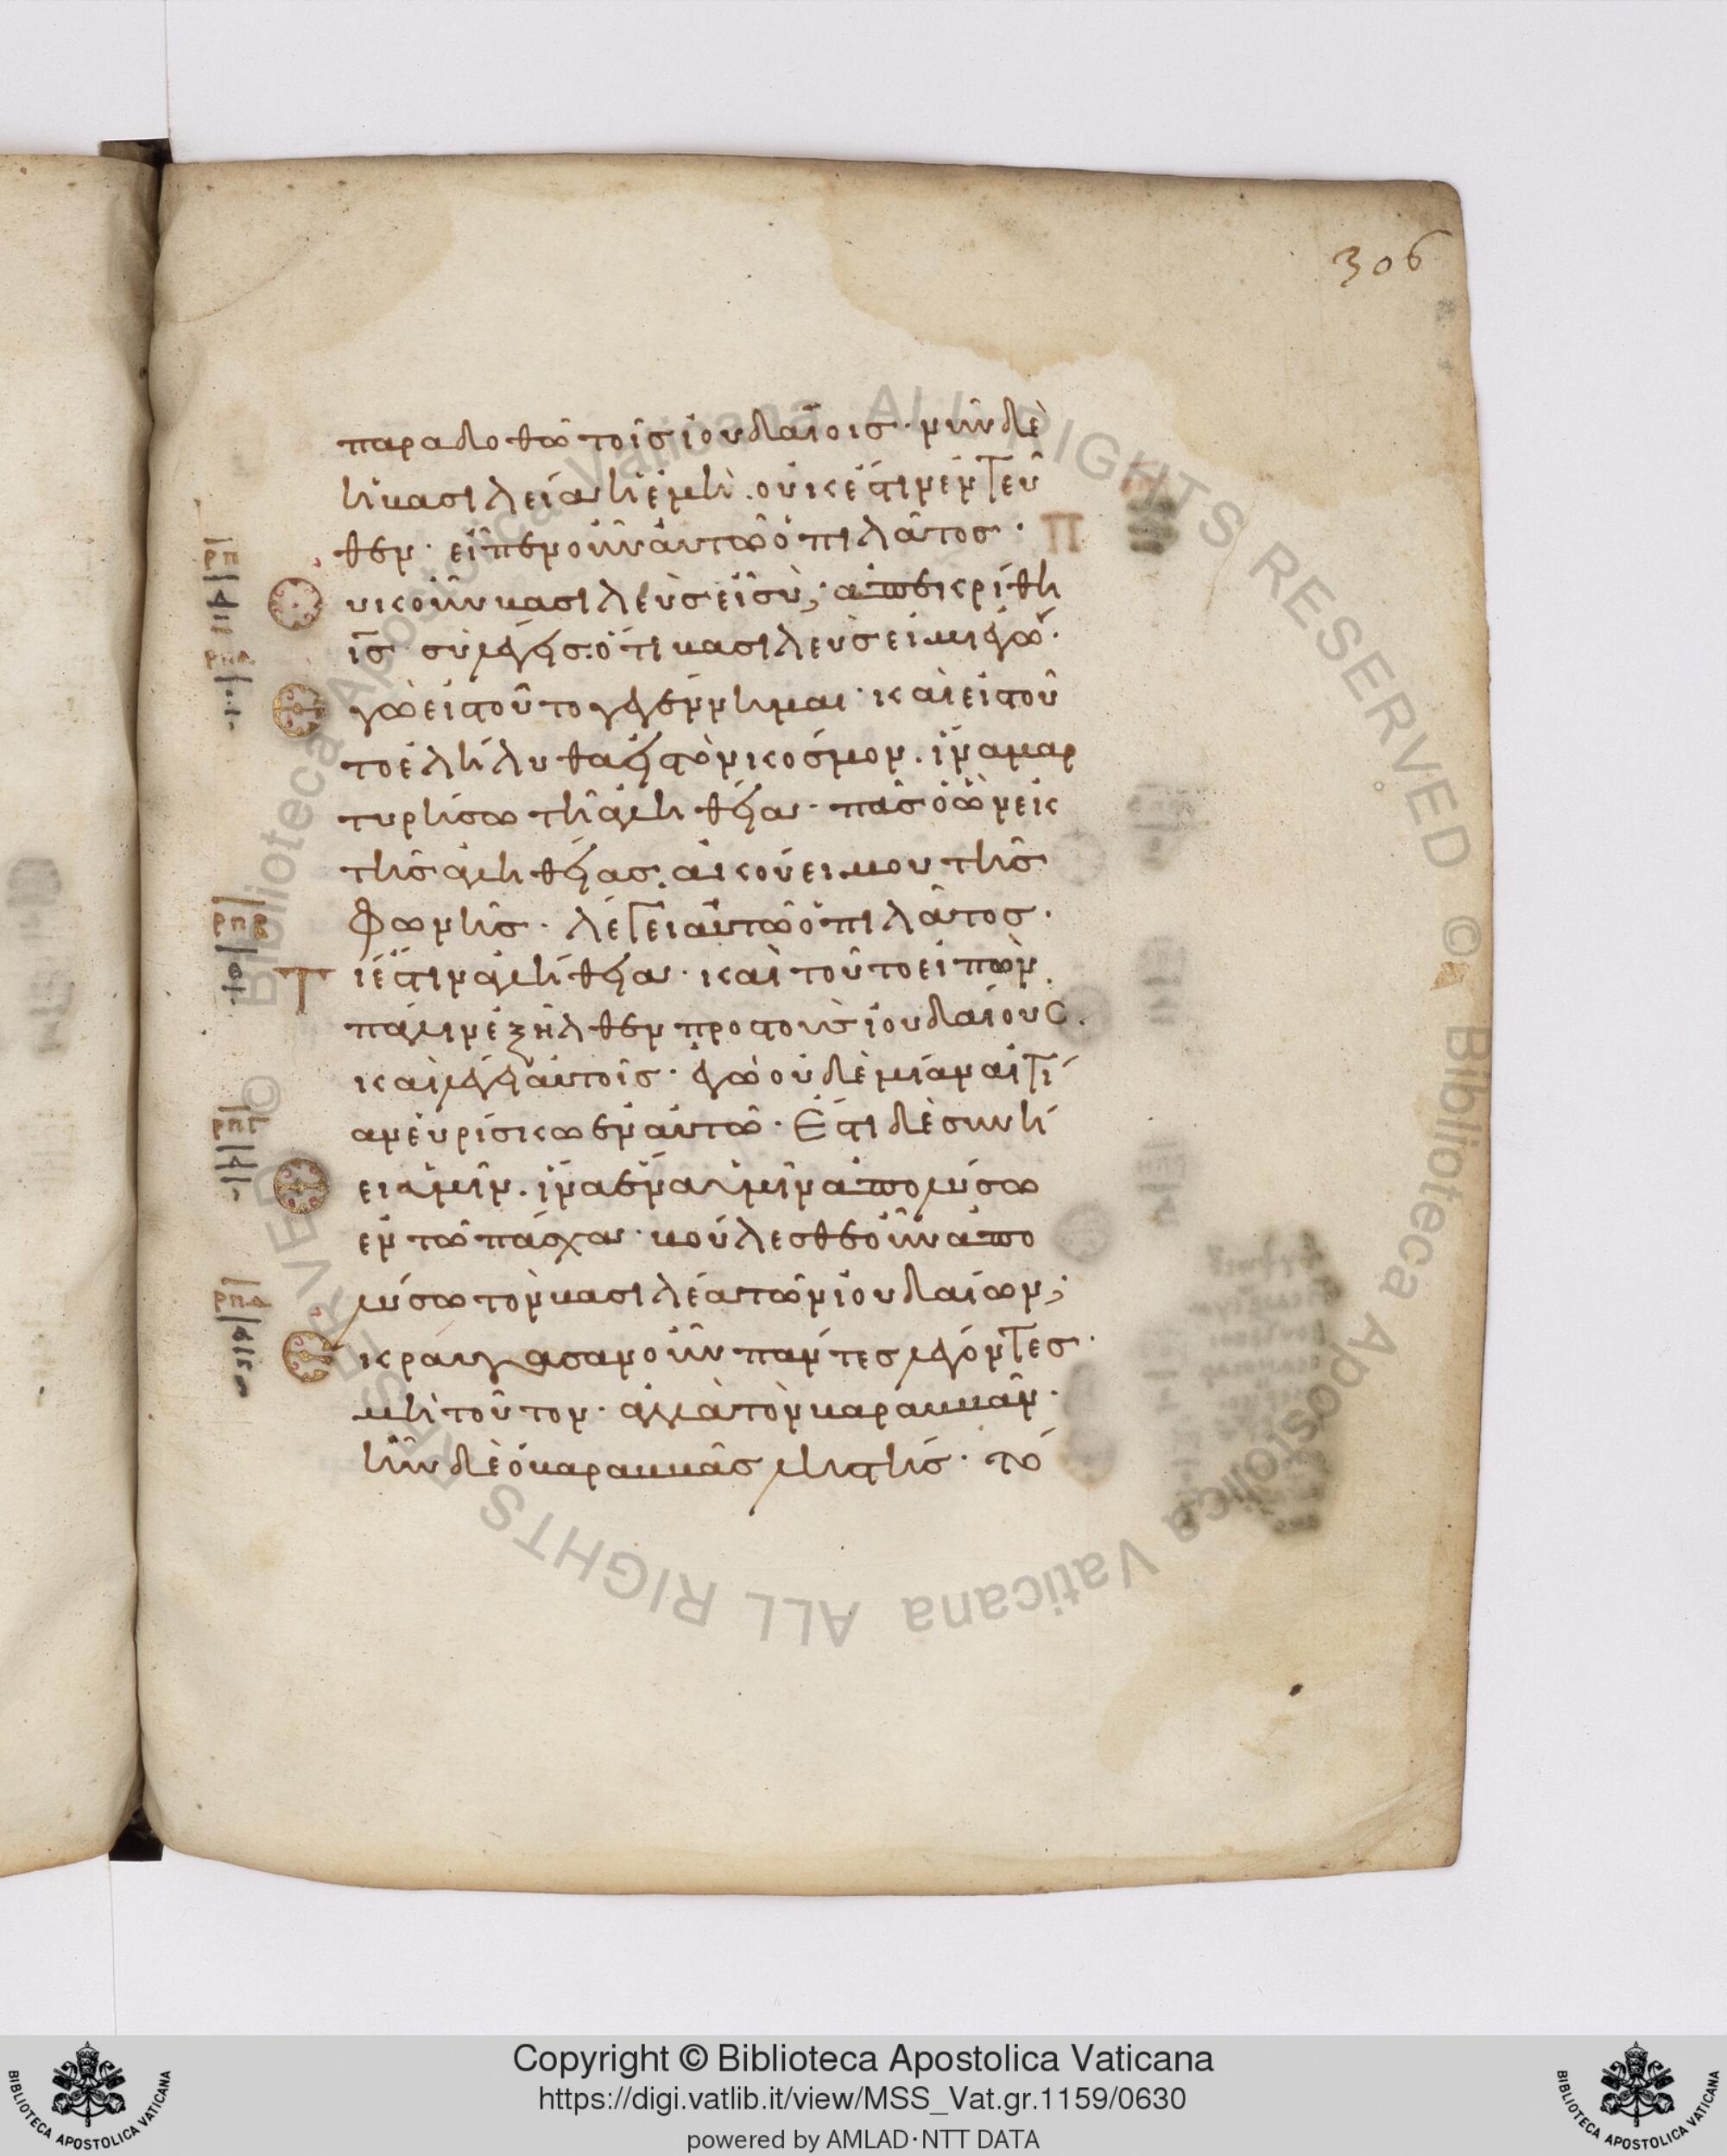 306
παραδοθῶ τοῖς ἰουδαίοις· νῦν δὲ
ἡ βασιλεία ἡ ἐμὴ. οὐκ ἔστιν ἐντεῦ
θεν· εἶπεν οὖν αὐτῶ ὁ πιλᾶτος· Π
υκοῦν βασιλεὺς εἶ σὺ; ἀπεκρίθη
ἰς σὺ λέγεις· ὅτι βασιλεὺς εἰμι ἐγώ·
γὼ εἰς τοῦτο γεγέννημαι· καὶ εἰς τοῦ
το ἐλήλυθα εἰς τὸν κόσμον. ἵνα μαρ
τυρήσω τῆ ἀληθεία· πᾶς ὁ ὢν ἐκ
τῆς ἀληθείας. ἀκούει μου τῆς
φωνῆς· λέγει αὐτῶ ὁ πιλᾶτος·
Τ ί ἐστιν ἀλήθεια· καὶ τοῦτο εἰπὼν.
πάλιν ἐξῆλθεν πρὸς τοὺς ἰουδαίους.
καὶ λέγει αὐτοῖς· ἐγὼ οὐδὲμίαν αἰτί
αν εὑρίσκω ἐν αὐτῶ· Ἔστι δὲ συνή
εια ὑμῖν. ἵνα ἕνα ὑμῖν ἀπολύσω
ἐν τῶ πάσχα· βούλεσθε οὖν ἀπο
λύσω τὸν βασιλέα τῶν ἰουδαίων;
κραύγασαν οὖν πάντες λέγοντες·
μὴ τοῦτον· ἀλλὰ τὸν βαραββᾶν·
ἦν δὲ ὁ βαραββᾶς ληστής· τό
ρπ
ρπα
ρπβ
ρπγ
ρπδ
Copyright © Biblioteca Apostolica Vaticana
https://digi.vatlib.it/view/MSS_Vat.gr.1159/0630
powered by AMLAD·NTT DATA
BIBLIOTECA APOSTOLICA VATICANA
BIBLIOTECA APOSTOLICA VATICANA
© Biblioteca Apostolica Vaticana ALL RIGHTS RESERVED
© Biblioteca Apostolica Vaticana ALL RIGHTS RESERVED